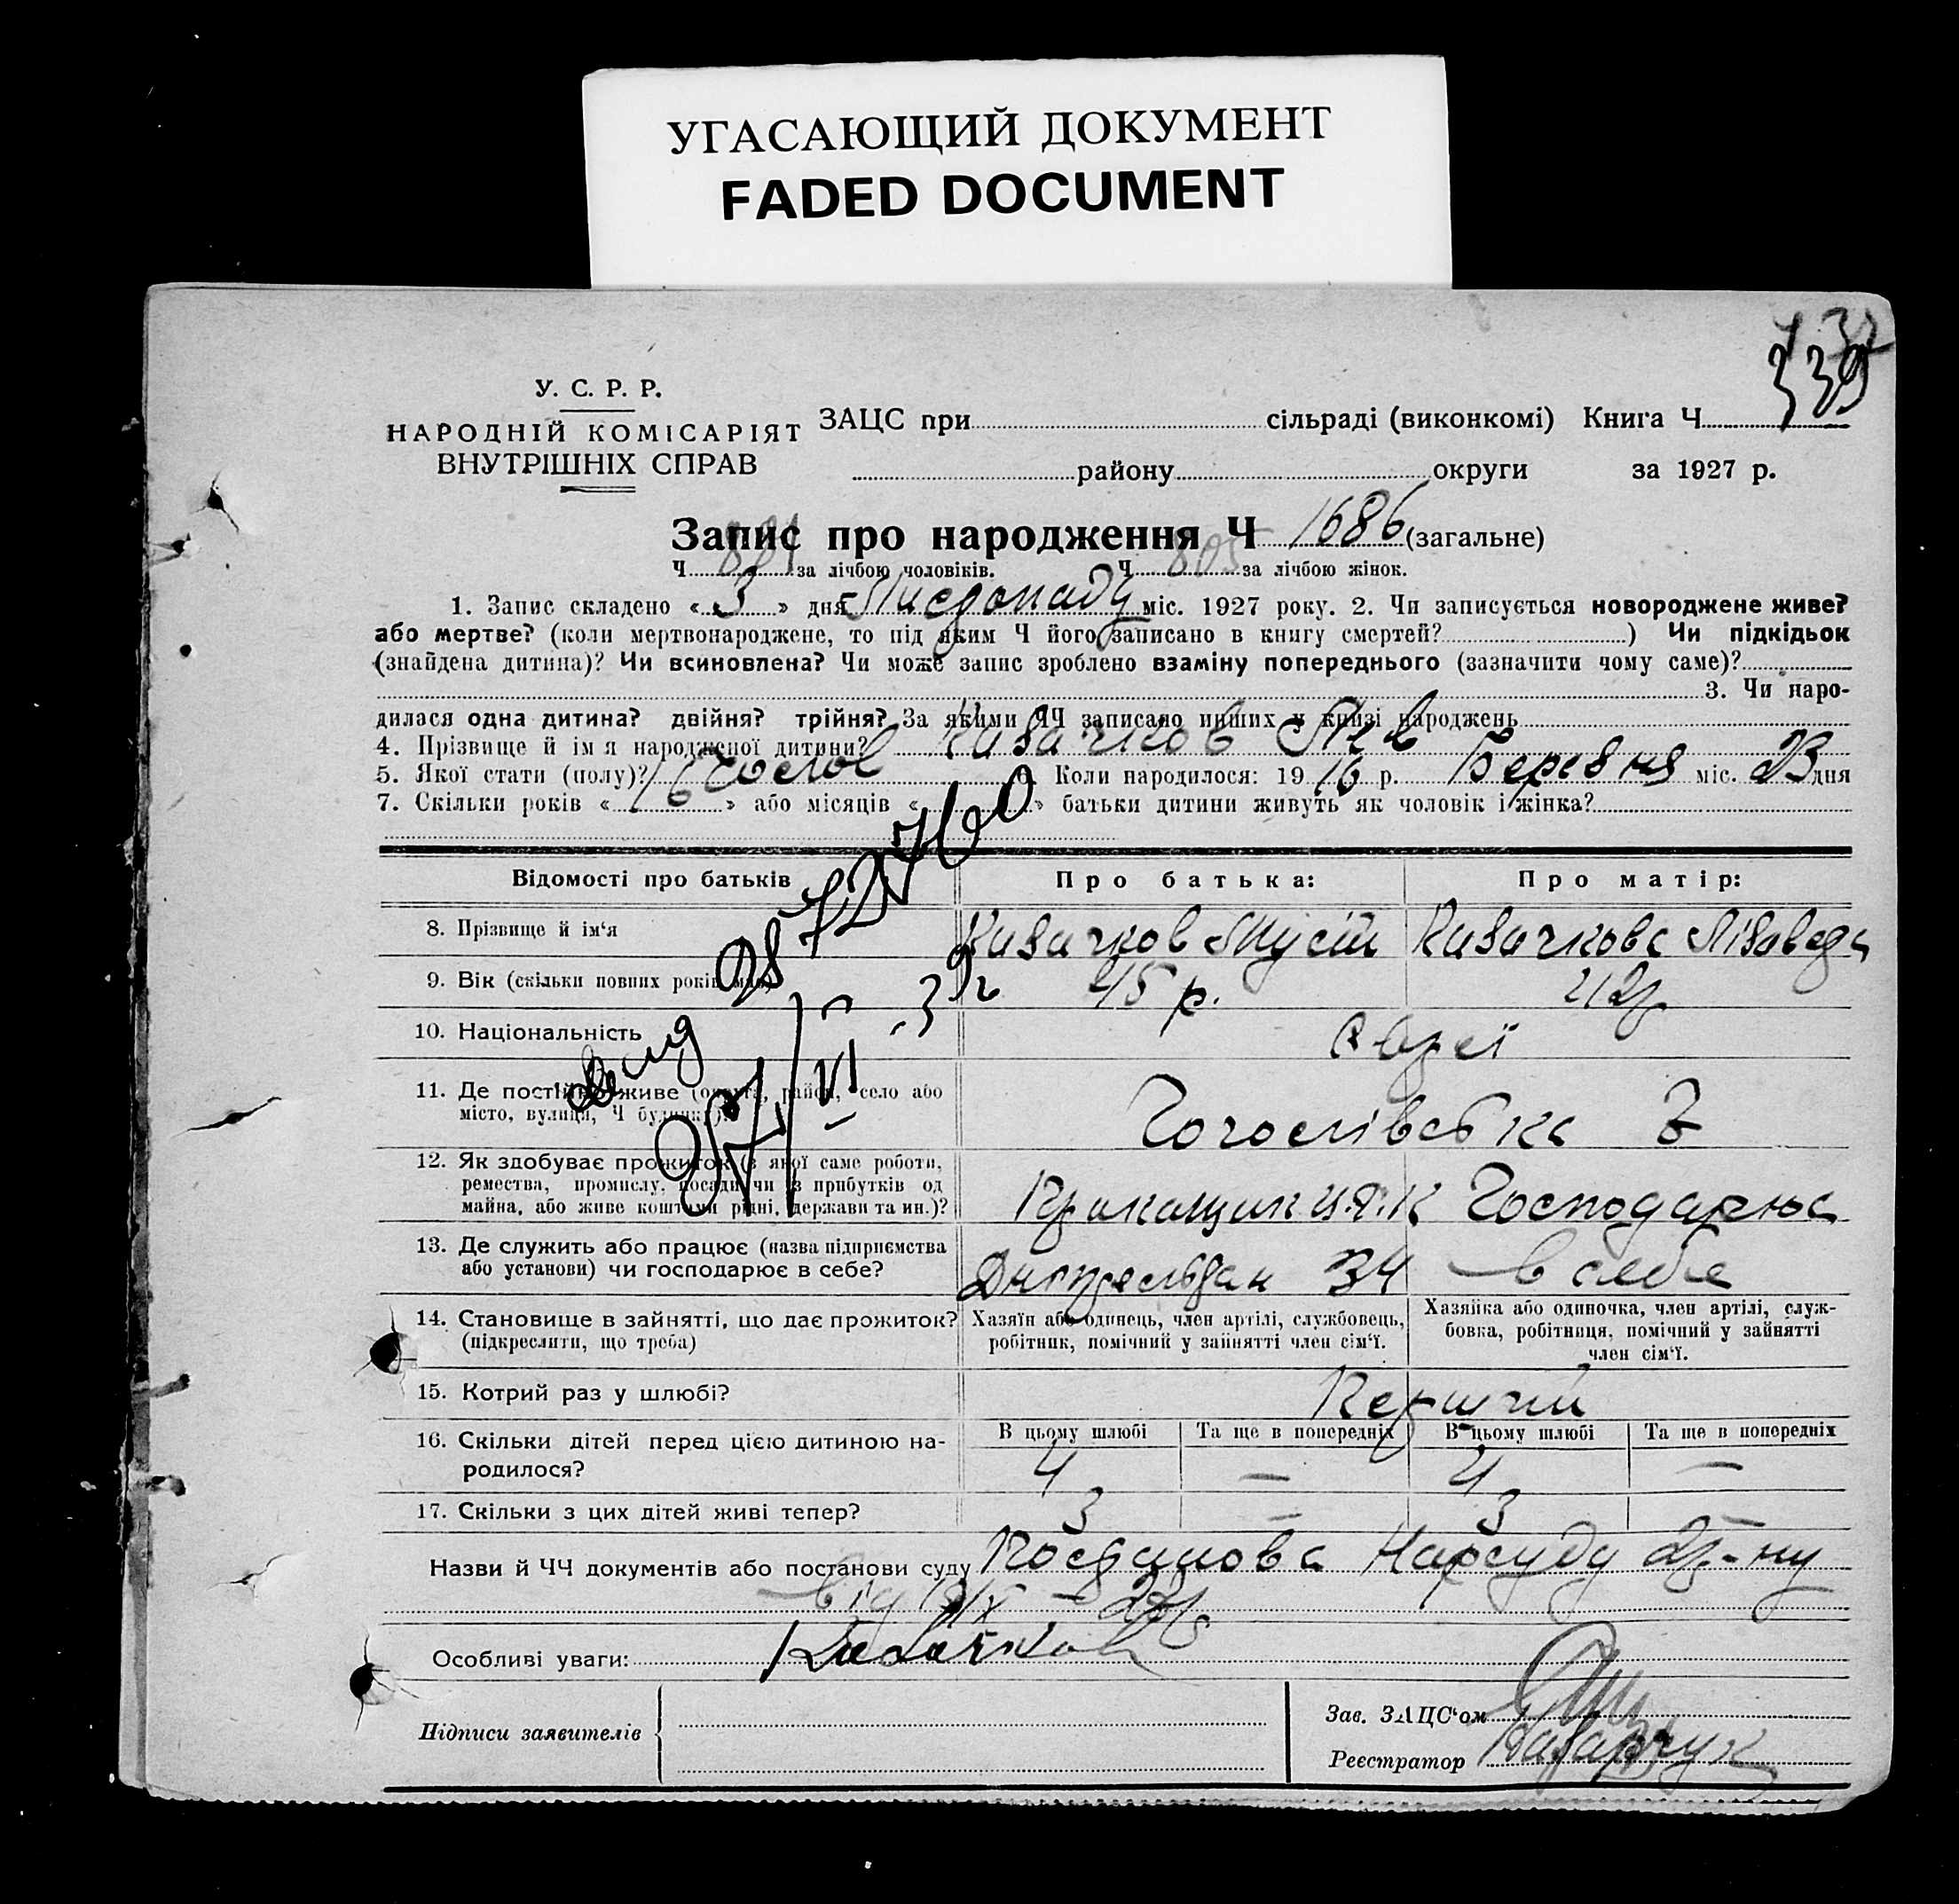 УГАСАЮЩИЙ ДОКУМЕНТ
FADED DOCUMENT
339
У. С. Р. Р.
НАРОДНІЙ КОМІСАРІЯТ
ВНУТРІШНІХ СПРАВ
ЗАЦС при сільраді (виконкомі) Книга Ч
району округи за 1927 р.
Запис про народження Ч 1686 (загальне)
Ч 881 за лічбою чоловіків. Ч 805 за лічбою жінок.
1. Запис складено « 3 » дня Листопаду міс. 1927 року. 2. Чи записується новороджене живе?
або мертве? (коли мертвонароджене, то під яким Ч його записано в книгу смертей? ) Чи підкідьок
(знайдена дитина)? Чи всиновлена? Чи може запис зроблено взаміну попереднього (зазначити чому саме)?
3. Чи наро-
дилася одна дитина? двійня? трійня? За якими ЧЧ записано инших у книзі народжень
4. Прізвище й ім я народженої дитини? Казачков Лев
5. Якої стати (полу)? Чолов 6. Коли народилося: 19 10 р. Березня міс. 23 дня
7. Скільки років « 16 » або місяців « » батьки дитини живуть як чоловік і жінка?
Відомості про батьків
Про батька:
Про матір:
8. Прізвище й ім‘я
Казачков Мусій
Казачкова Лізавета
9. Вік (скільки повних років має)
45 р.
42 р
10. Національність
Євреї
11. Де постійно живе (округа, район, село або
місто, вулиця, Ч будинку)?
12. Як здобуває прожиток (з якої саме роботи,
ремества, промислу, посади чи з прибутків од
майна, або живе коштами рідні, держави та ин.)?
Господарює
13. Де служить або працює (назва підприємства
або установи) чи господарює в себе?
34
в себе
14. Становище в зайнятті, що дає прожиток?
(підкреслити, що треба)
Хазяїн або одинець, член артілі, службовець,
робітник, помічний у зайнятті член сім‘ї.
Хазяйка або одиночка, член артілі, служ-
бовка, робітниця, помічний у зайнятті
член сім‘ї.
15. Котрий раз у шлюбі?
Перший
16. Скільки дітей перед цією дитиною на-
родилося?
В цьому шлюбі
Та ще в попередніх
В цьому шлюбі
Та ще в попередніх
4 — 4 —
17. Скільки з цих дітей живі тепер?
3 — 3 —
Назви й ЧЧ документів або постанови суду Постанова Нарсуду 2 р-ну
від
Особливі уваги: Казачков
Підписи заявителів
Зав. ЗАЦС‘ом
Реєстратор